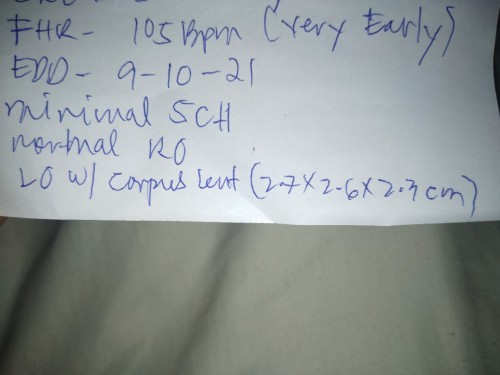 FHR - 105 Bpm (Very Early)
EDD - 9-10-21
minimal SCH
normal RO
LO w/ corpus lent (2.7 x 2.6 x 2.3 cm)